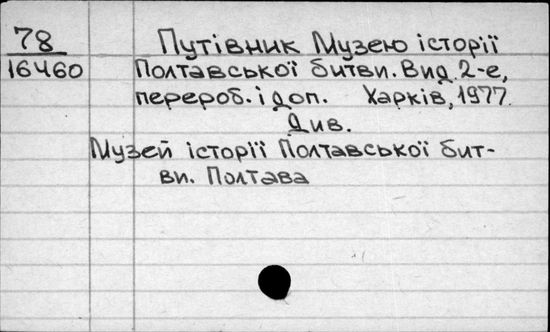 78 Путівник Музею історії
16460 Полтавської битви. Вид. 2-е,
перероб. і доп. Харків, 1977.
Див.
Музей історії Полтавської бит-
ви. Полтава